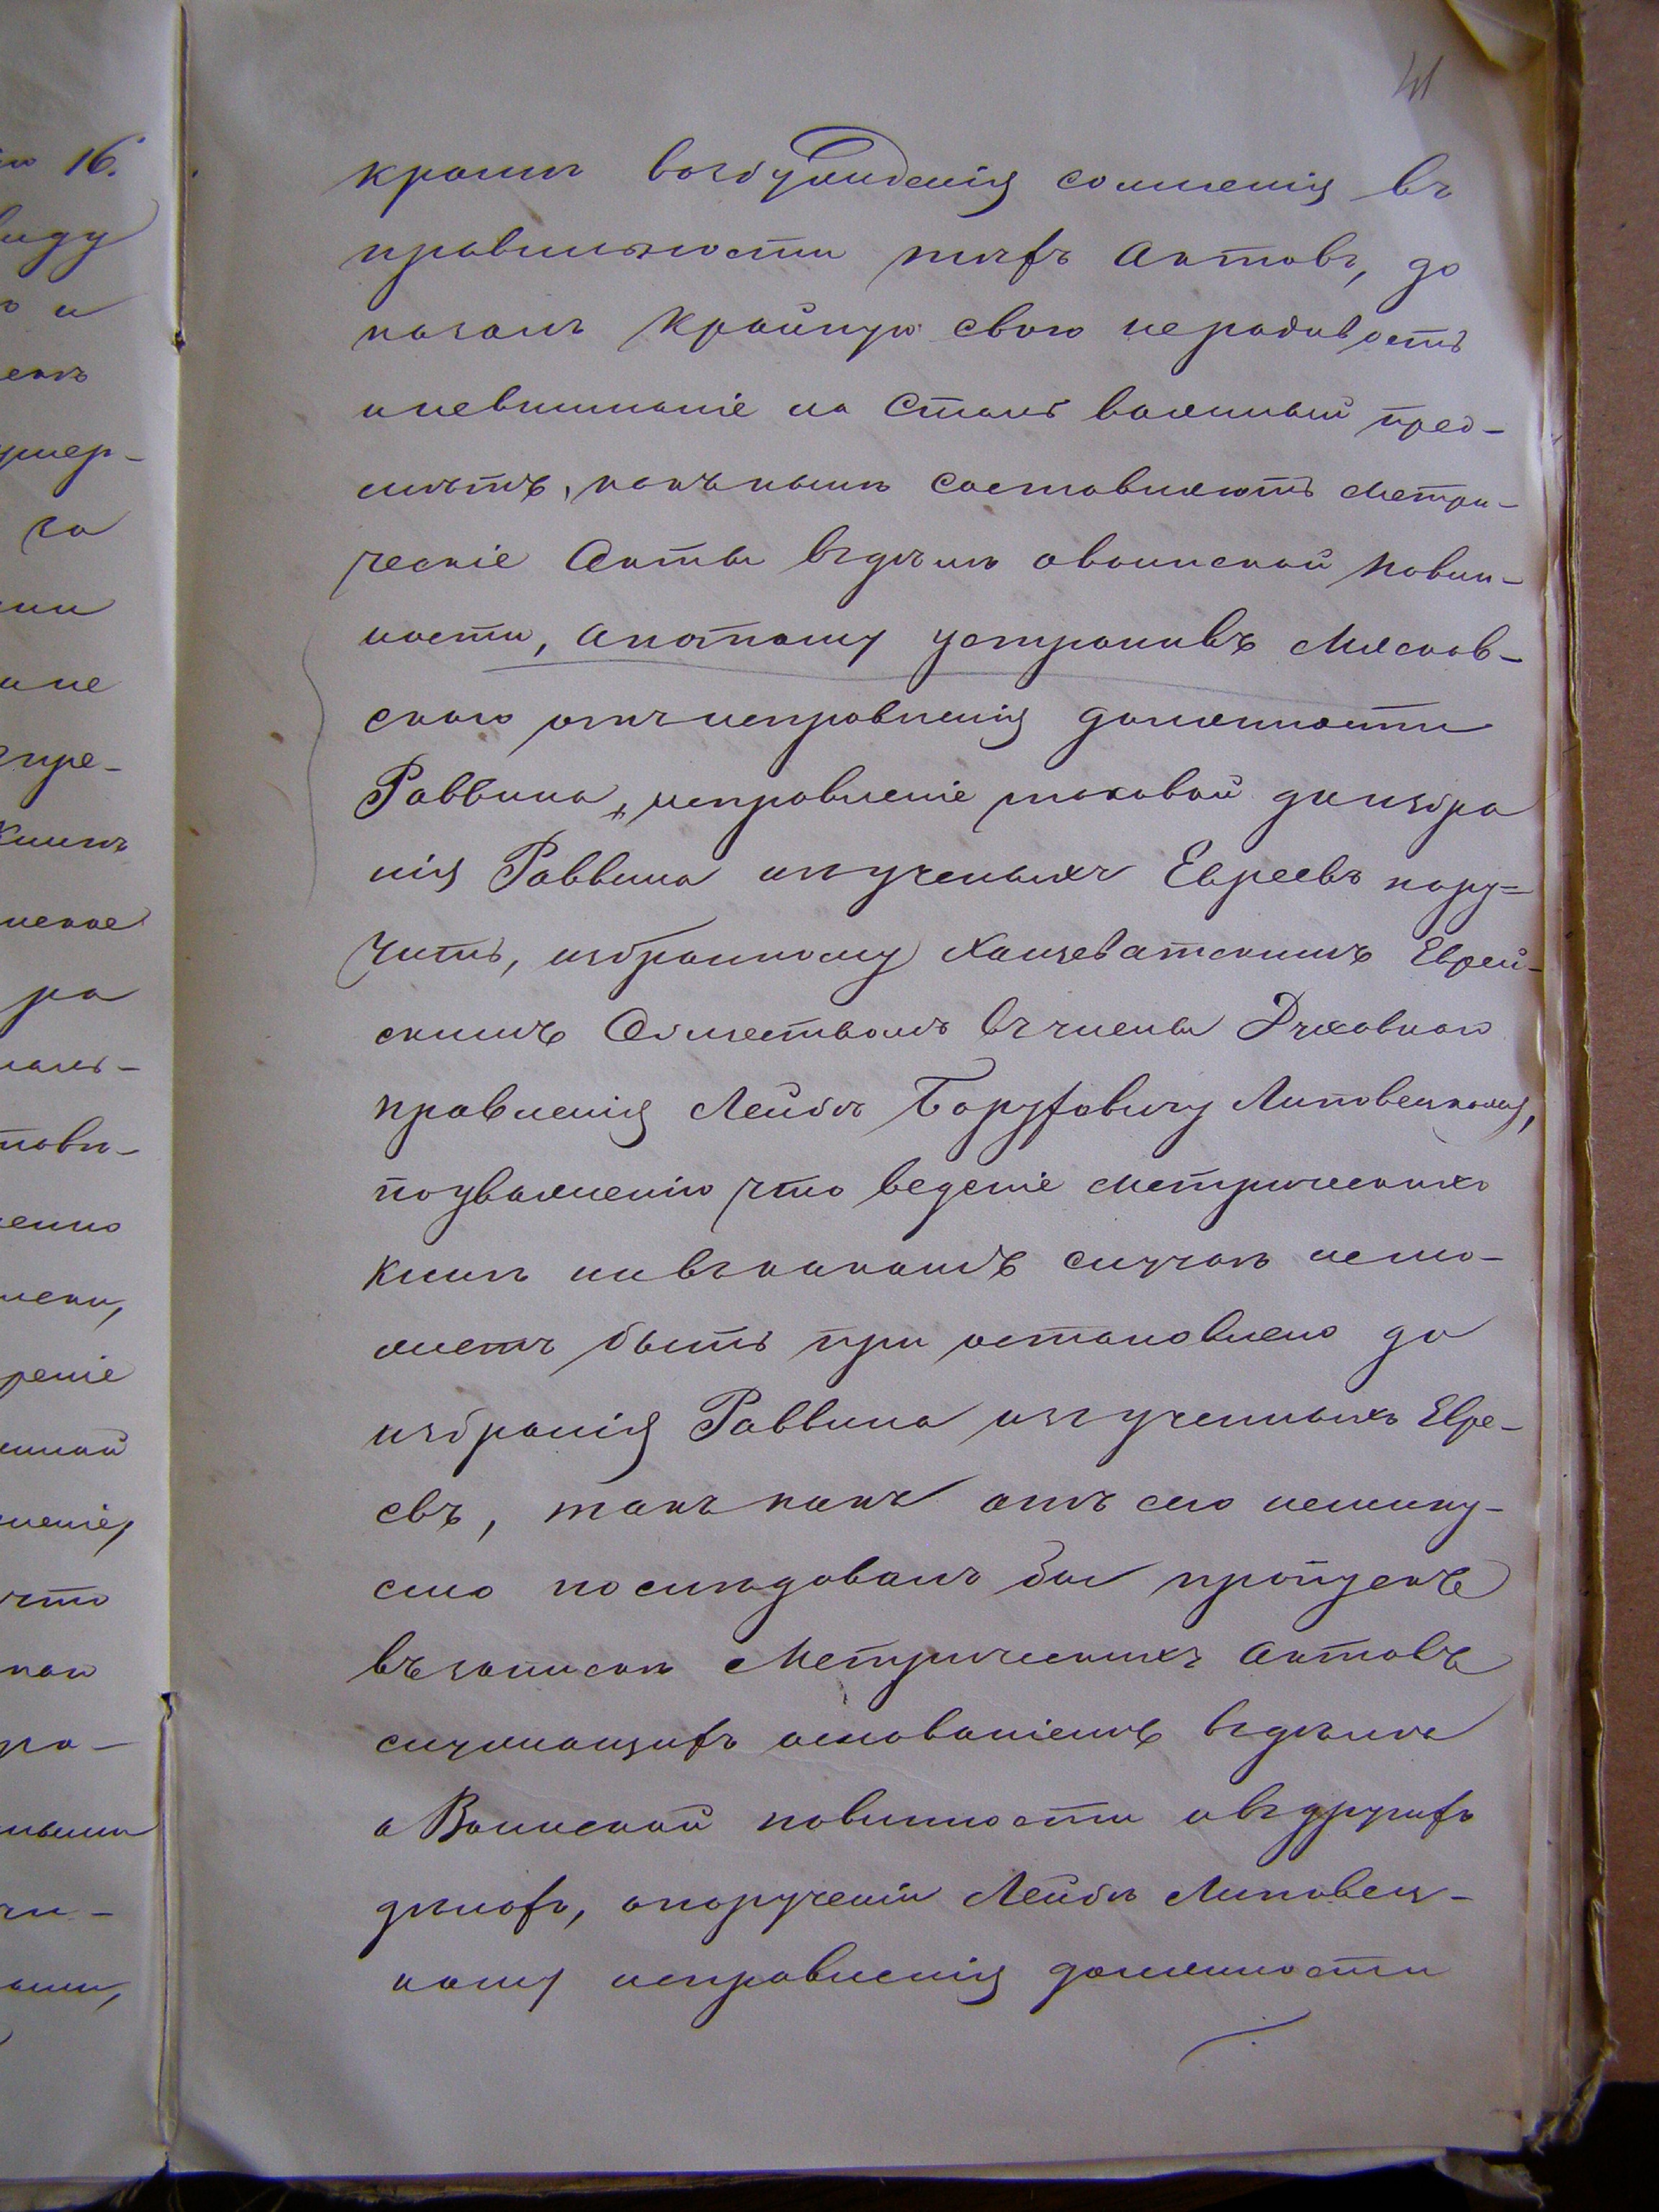 41
кромѣ возбужденія сомненія въ
правильности тѣхъ Актовъ, до
казалъ крайную свою нерадивость
иневниманіе на Столь важный пред-
мѣтъ, какъ нынѣ составляютъ Метри-
ческіе Акты въдѣлѣ овоинской повин-
ности, апотому устранивъ Мясков-
скаго отъ исправленія должности
Раввина, исправленіе таковой до избра
нія Раввина изъ ученыхъ Евреевъ пору-
чить, избранному Хащеватскимъ Еврей-
скимъ Обществомъ въ члены Духовнаго
правленія Лейбѣ Боруховичу Липовецкому,
поуваженію что веденіе метрическихъ
Книгъ нивъкакомъ случаѣ немо-
жетъ быть при остановлено до
избранія Раввина изъ ученныхъ Евре-
евъ, такъ какъ отъ сего немину-
емо последовалъ бы пропускъ
въ записки Метрическихъ Актовъ
служащихъ основаніемъ въдѣлѣ
о Воинской повинности ивъ другихъ
дѣлахъ, опорученіи Лейбѣ Липовец-
кому исправленія должности
16.
виду
и
умер-
за
ра
что
реніе